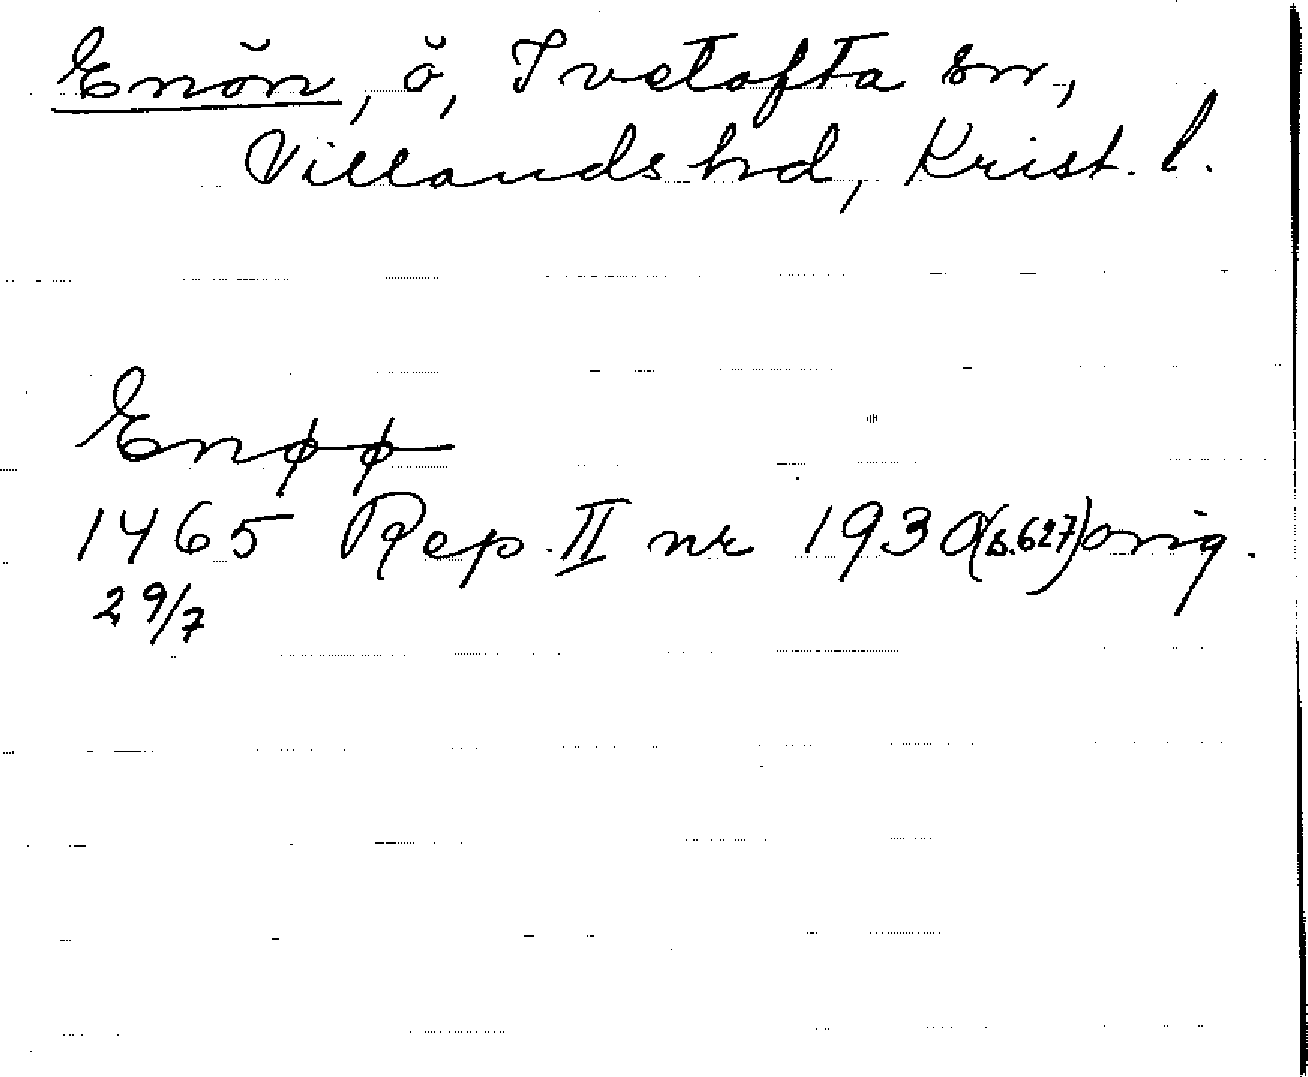 Enön, ö, Ivetofta sn,
Villands hd, Krist. l.
Enøø
1465 Rep. II nr 1930 (s.627) orig.
29/7